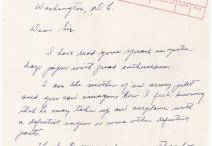 Washington, D.C.
Dear Sir,
I have read your spread in yester-
days paper with great enthusiasm.
I am the mother of an army pilot
and you can imagine how I feel, knowing
that he may take up an airplane with
a defective engine or some other defective
parts.